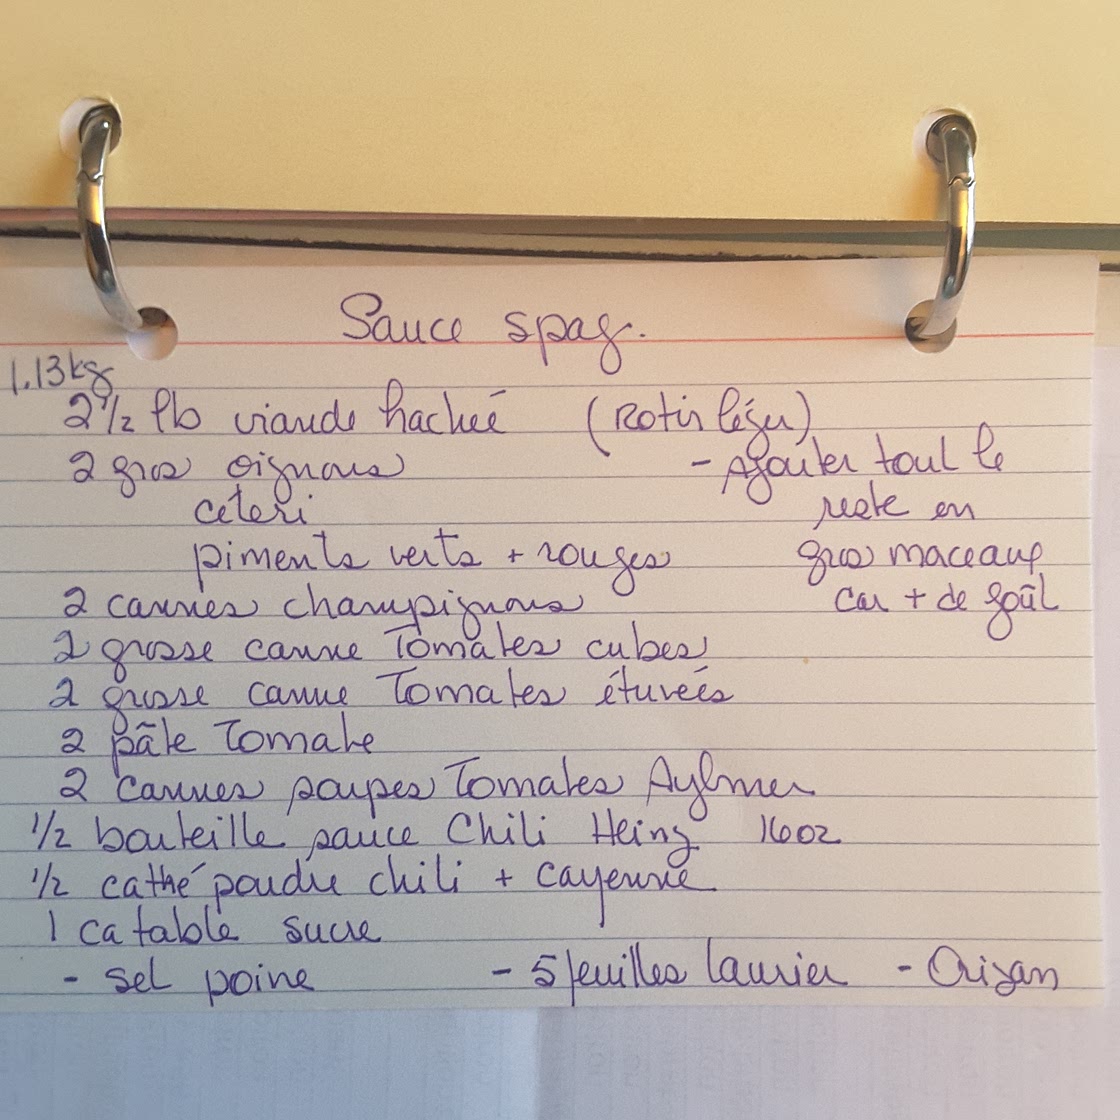 Sauce spag.
1.13kg
2 1/2 lb viande hachée (Rotir léger)
2 gros oignons
- Ajouter tout le
céleri
reste en
piments verts + rouges
gros morceaux
2 cannes champignons
car + de goût
2 grosse canne Tomates cubes
2 grosse canne Tomates étuvées
2 pâte Tomate
2 cannes soupes Tomates Aylmer
1/2 bouteille sauce Chili Heinz 16oz
1/2 cathé poudre chili + cayenne
1 ca table sucre
- sel poivre - 5 feuilles laurier - Origan